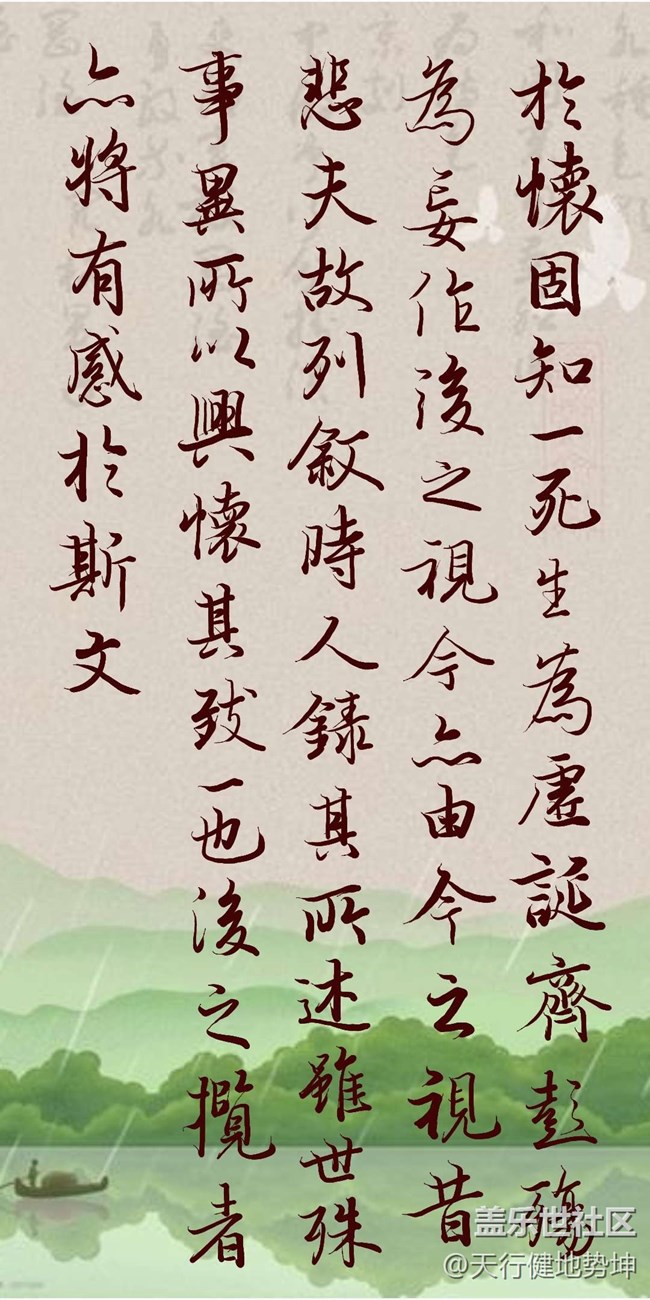 於懷固知一死生為虛誕齊彭殤
為妄作後之視今亦由今之視昔
悲夫故列敘時人錄其所述雖世殊
事異所以興懷其致一也後之攬者
亦將有感於斯文
盖乐世社区
@天行健地势坤